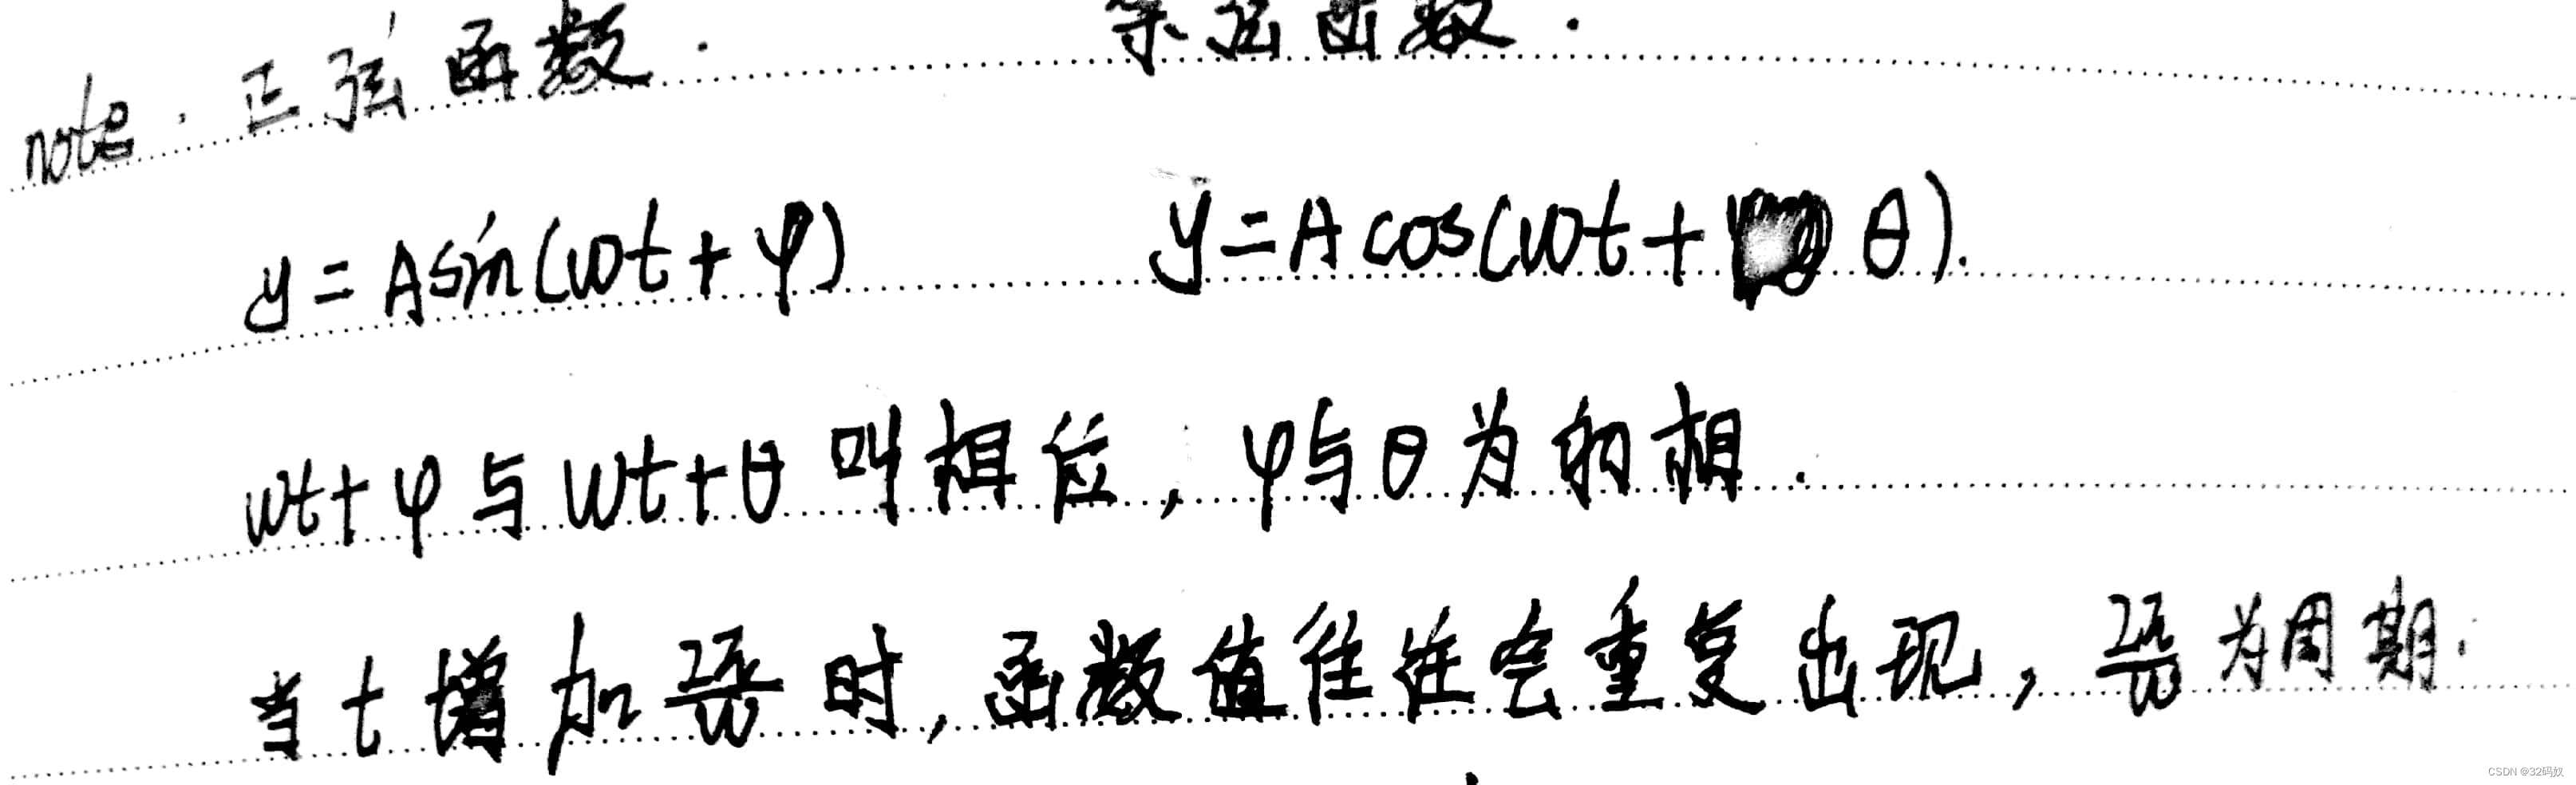 note. 正弦函数. 余弦函数.
y = Asin(ωt + φ) y = A cos(ωt + θ).
ωt + φ 与 ωt + θ 叫相位, φ与θ为初相.
当 t 增加 2π/ω 时, 函数值往往会重复出现, 2π/ω 为周期.
CSDN @32码奴